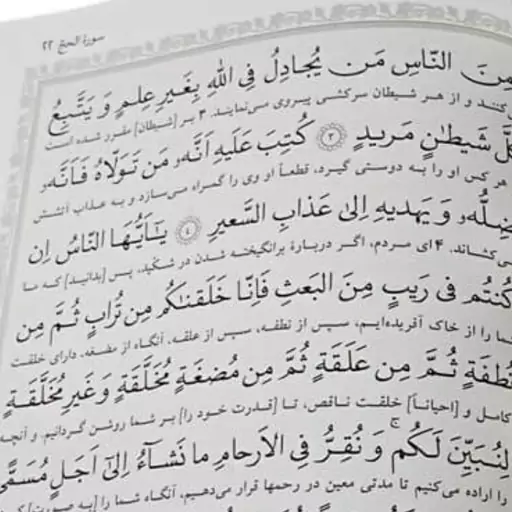 سورة الحج ۲۲
مِنَ النّاسِ مَن يُجادِلُ فِي اللّٰهِ بِغَيرِ عِلمٍ وَ يَتَّبِعُ
می‌کنند و از هر شیطان سرکشی پیروی می‌نمایند. ۳ بر [شیطان] مقرر شده است
كُلَّ شَيطٰنٍ مَريدٍ ﴿۳﴾ كُتِبَ عَلَيهِ اَنَّهُ مَن تَوَلّاهُ فَاَنَّهُ
هر کس او را به دوستی گیرد، قطعاً او وی را گمراه می‌سازد و به عذاب آتشش
يُضِلُّهُ وَ يَهديهِ اِلىٰ عَذابِ السَّعيرِ ﴿۴﴾ يٰاَيُّهَا النّاسُ اِن
می‌کشاند. ۴ ای مردم، اگر دربارهٔ برانگیخته شدن در شکّید، پس [بدانید] که ما
كُنتُم في رَيبٍ مِنَ البَعثِ فَاِنّا خَلَقنٰكُم مِن تُرابٍ ثُمَّ مِن
شما را از خاک آفریده‌ایم، سپس از نطفه، سپس از علقه، آنگاه از مضغه، دارای خلقت
نُطفَةٍ ثُمَّ مِن عَلَقَةٍ ثُمَّ مِن مُضغَةٍ مُخَلَّقَةٍ وَ غَيرِ مُخَلَّقَةٍ
کامل و [احیاناً] خلقت ناقص، تا [قدرت خود را] بر شما روشن گردانیم. و آنچه
لِنُبَيِّنَ لَكُم ۚ وَ نُقِرُّ فِي الاَرحامِ ما نَشاءُ اِلىٰ اَجَلٍ مُسَمًّى
را اراده می‌کنیم تا مدتی معین در رحمها قرار می‌دهیم، آنگاه شما را [به صورت]